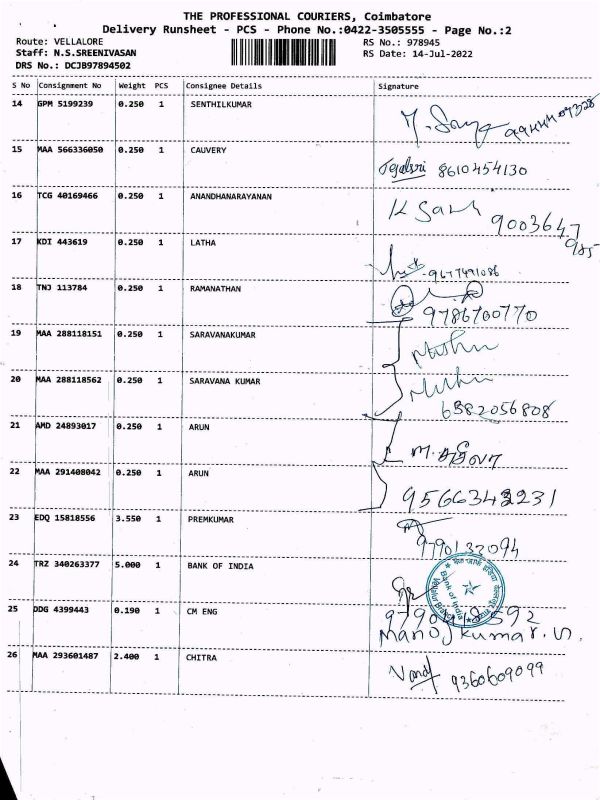 THE PROFESSIONAL COURIERS, Coimbatore
Delivery Runsheet - PCS - Phone No.:0422-3505555 - Page No.:2
Route: VELLALORE RS No.: 978945
Staff: N.S.SREENIVASAN RS Date: 14-Jul-2022
DRS No.: DCJB97894502
S No Consignment No Weight PCS Consignee Details Signature
14 GPM 5199239 0.250 1 SENTHILKUMAR
15 MAA 566336050 0.250 1 CAUVERY 8610454130
16 TCG 40169466 0.250 1 ANANDHANARAYANAN
9003647
985
17 KDI 443619 0.250 1 LATHA 9677491086
18 TNJ 113784 0.250 1 RAMANATHAN
9786700770
19 MAA 288118151 0.250 1 SARAVANAKUMAR
20 MAA 288118562 0.250 1 SARAVANA KUMAR
6382056808
21 AMD 24893017 0.250 1 ARUN
22 MAA 291408042 0.250 1 ARUN
9566343231
23 EDQ 15818556 3.550 1 PREMKUMAR
9790133094
24 TRZ 340263377 5.000 1 BANK OF INDIA
Bank of India
25 DDG 4399443 0.190 1 CM ENG
Manojkumar.S.
26 MAA 293601487 2.400 1 CHITRA
9360609099